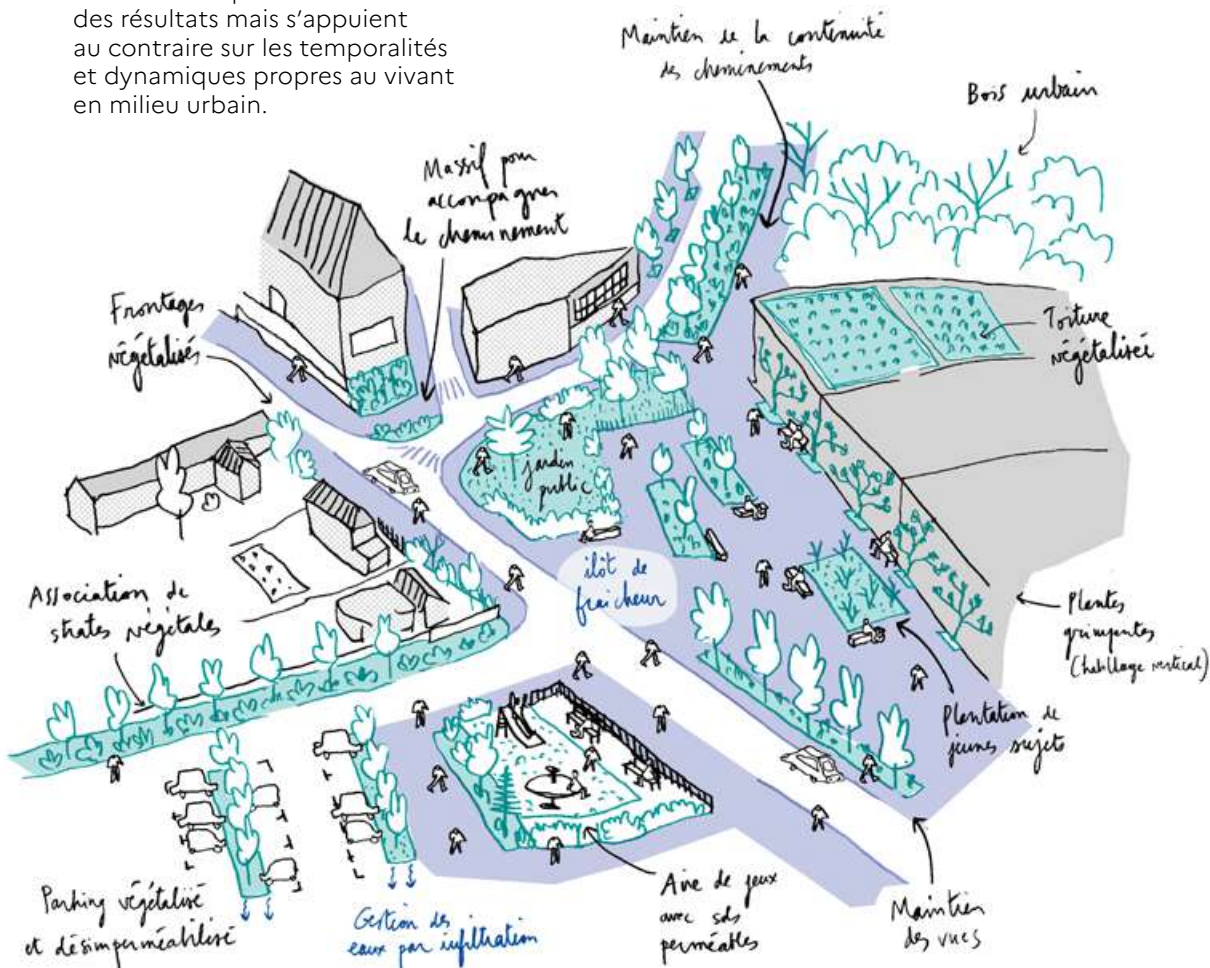 des résultats mais s'appuient
au contraire sur les temporalités
et dynamiques propres au vivant
en milieu urbain.
Maintien de la continuité
des cheminements
Bois urbain
Massif pour
accompagner
le cheminement
Frontages
végétalisés
Toiture
végétalisée
jardin
public
îlôt de
fraîcheur
Association de
strates végétales
Plantes
grimpantes
(habillage vertical)
Plantation de
jeunes sujets
Parking végétalisé
et désimperméabilisé
Gestion des
eaux par infiltration
Aire de jeux
avec sols
perméables
Maintien
des vues